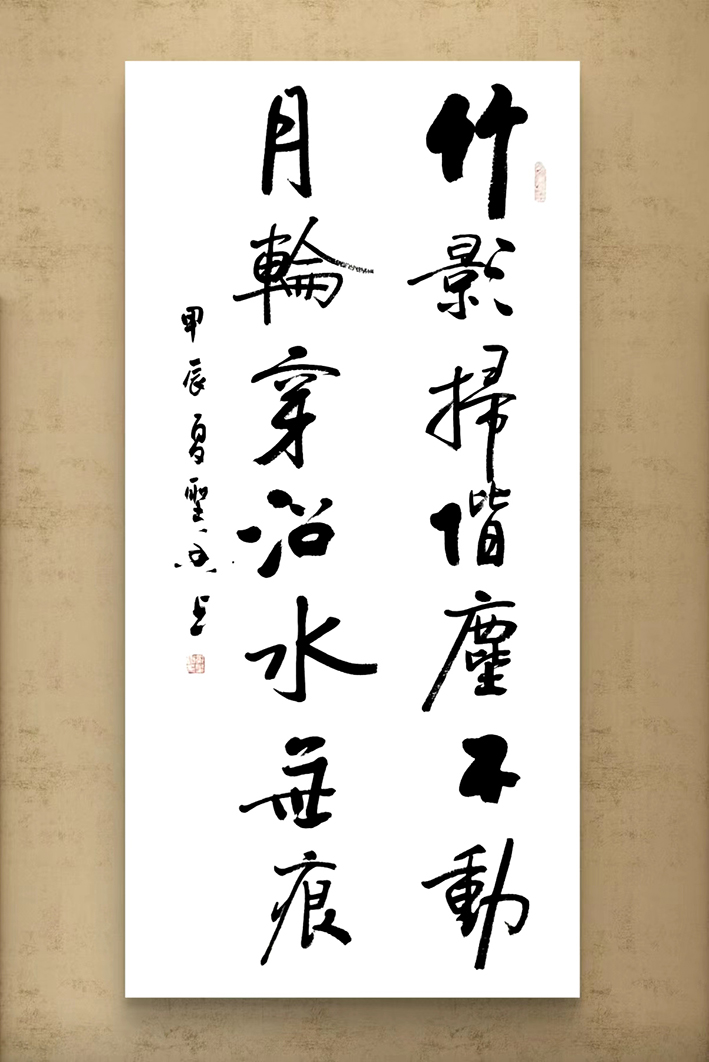 竹影掃階塵不動
月輪穿沼水無痕
甲辰夏聖